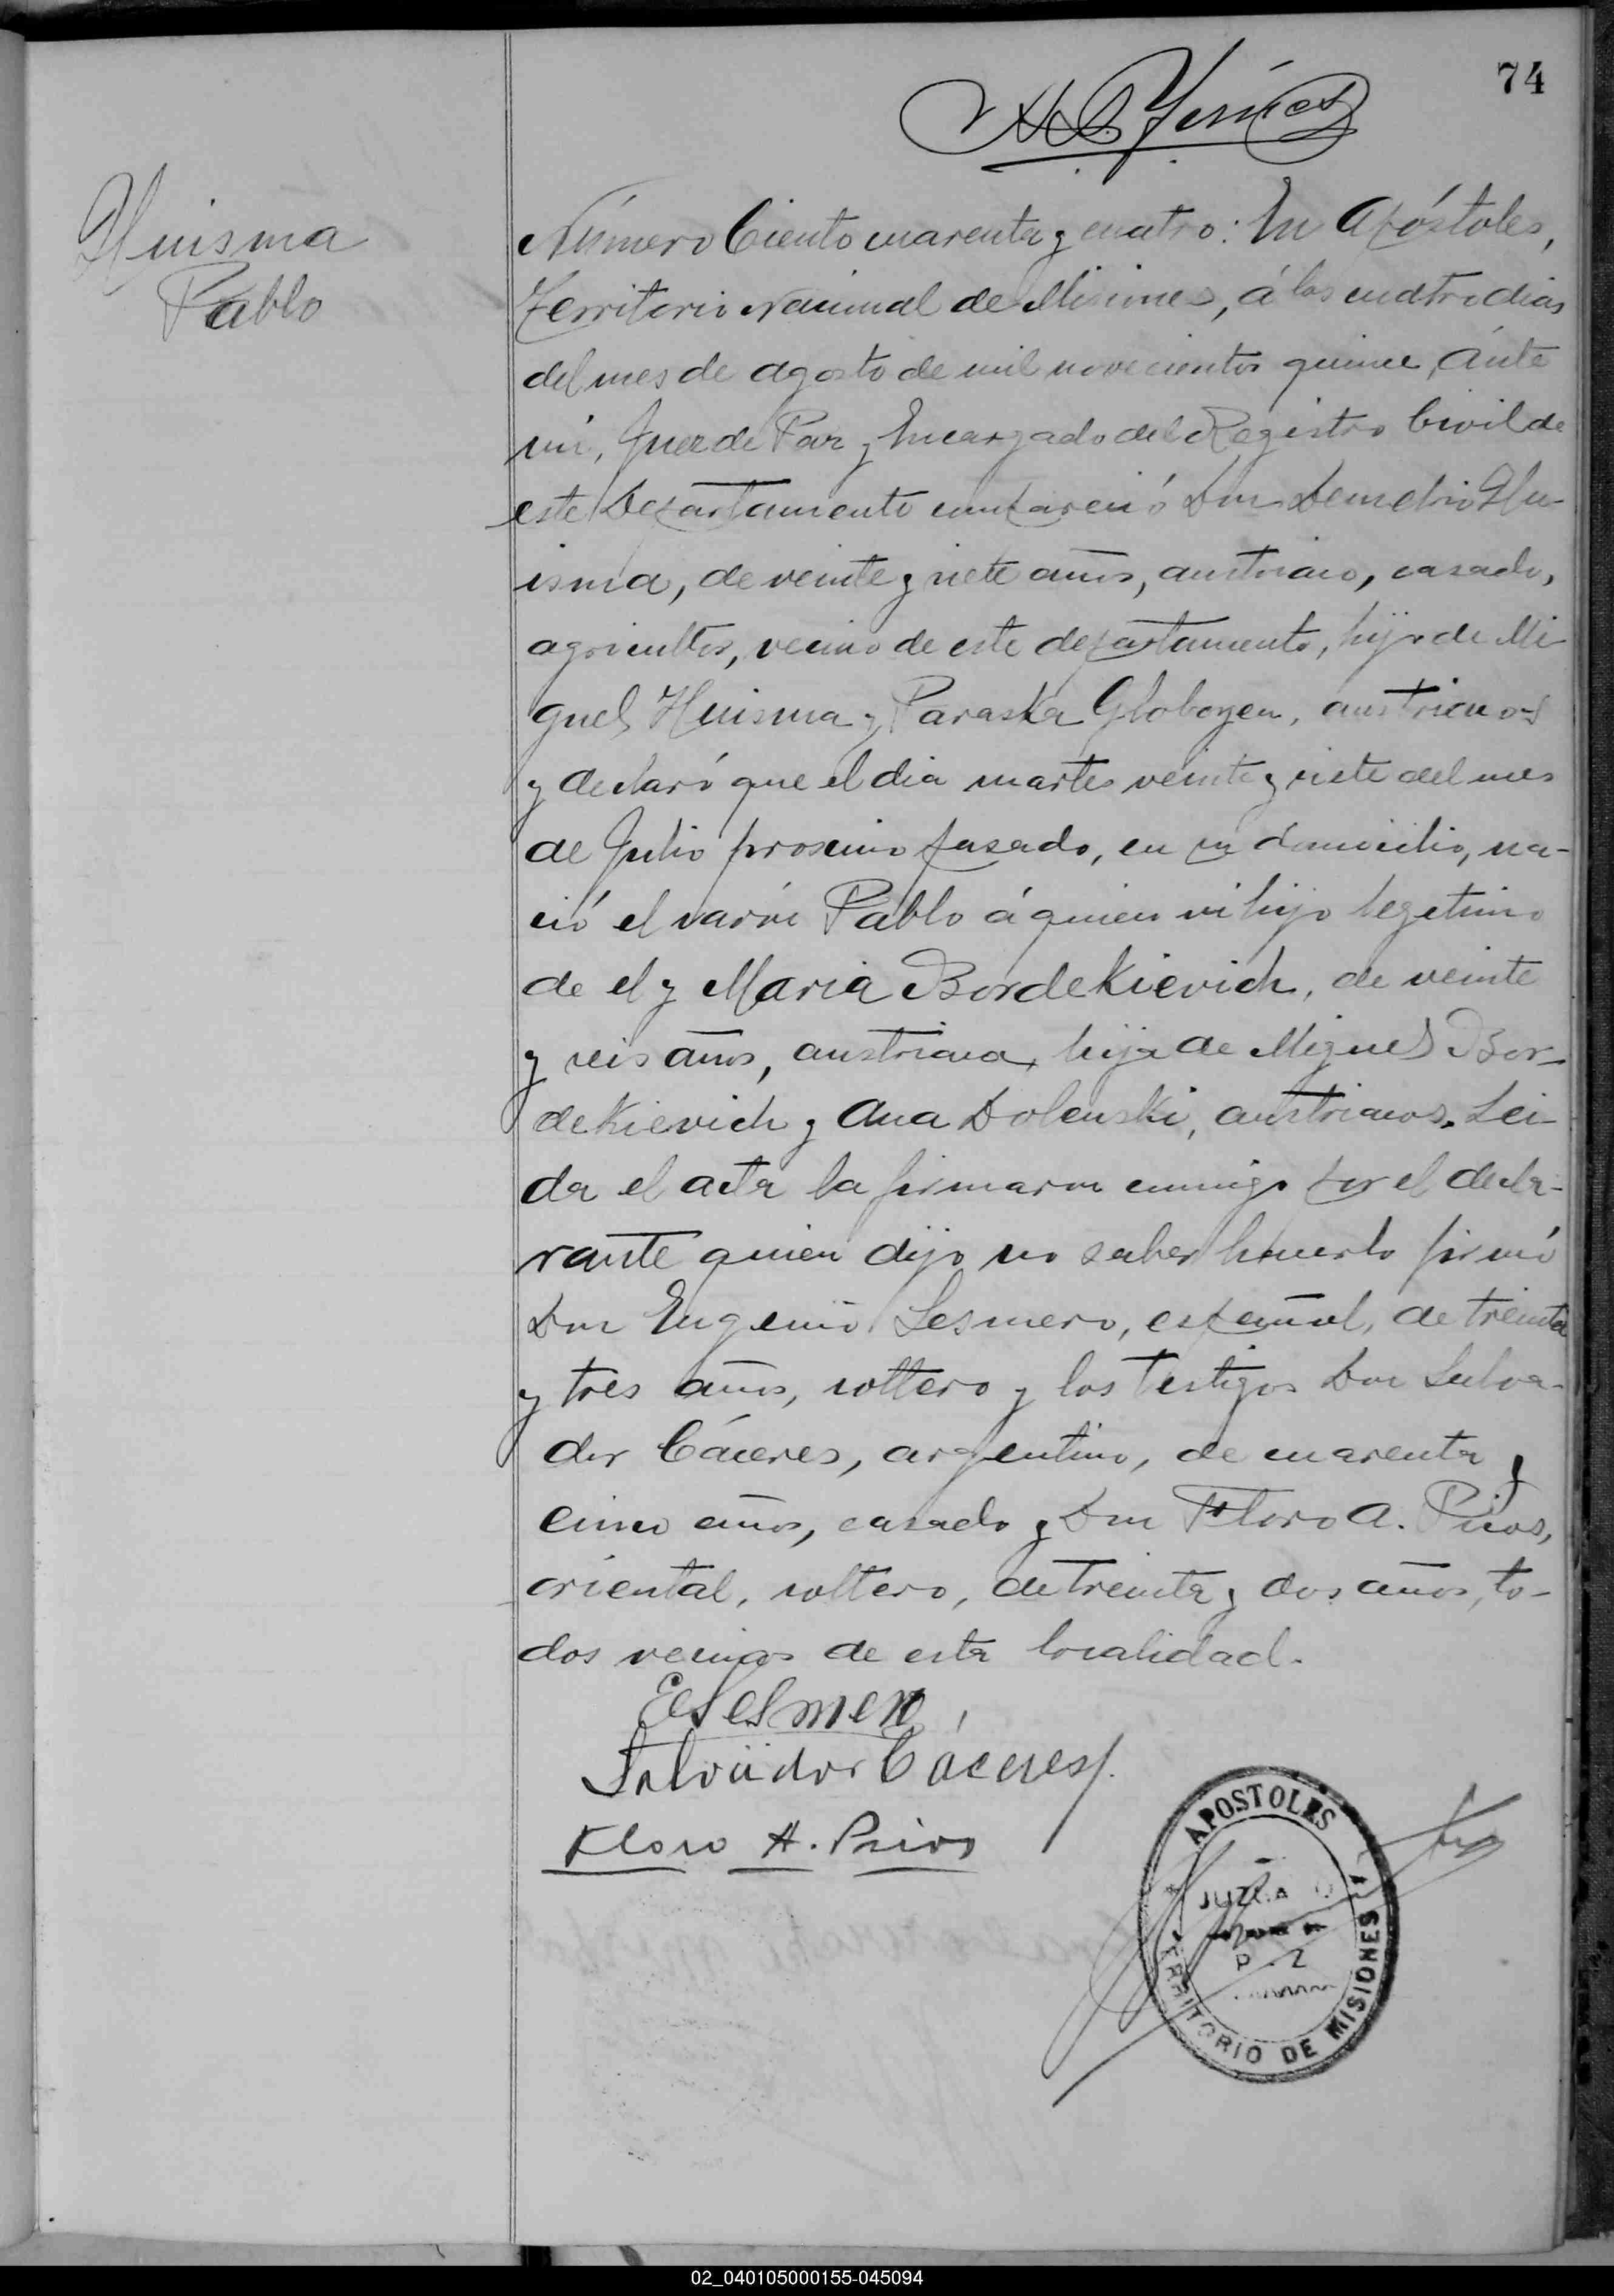 74
Huisma
Pablo
Número Ciento cuarenta y cuatro: En Apóstoles,
Territorio Nacional de Misiones, á los cuatro dias
del mes de agosto de mil novecientos quince, ánte
mi, Juez de Paz y Encargado del Registro Civil de
este Departamento compareció Don Demetrio Hu-
isma, de veinte y siete años, austriaco, casado,
agricultor, vecino de este departamento, hijo de Mi-
guel Huisma y Paraska Globozen, austriacos
y declaró que el dia martes veinte y siete del mes
de Julio proximo pasado, en su domicilio, na-
ció el varón Pablo á quien vi hijo legetimo
de el y Maria Bordekievich, de veinte
y seis años, austriaca, hija de Miguel Bor-
dekievich y Ana Dolenski, austriacos. Lei-
da el acta la firmaron conmigo por el decla-
rante quien dijo no saber hacerlo firmó
Don Eugenio Lesmero, español, de treinta
y tres años, soltero y los testigos Don Salva-
dor Cáceres, argentino, de cuarenta y
cinco años, casado y Don Floro A. Pivos,
oriental, soltero, de treinta y dos años, to-
dos vecinos de esta localidad.
Salvador Cáceres
Floro A.
APOSTOLES
JUZGA O
P Z
TERRITORIO DE MISIONES
02_040105000155-045094